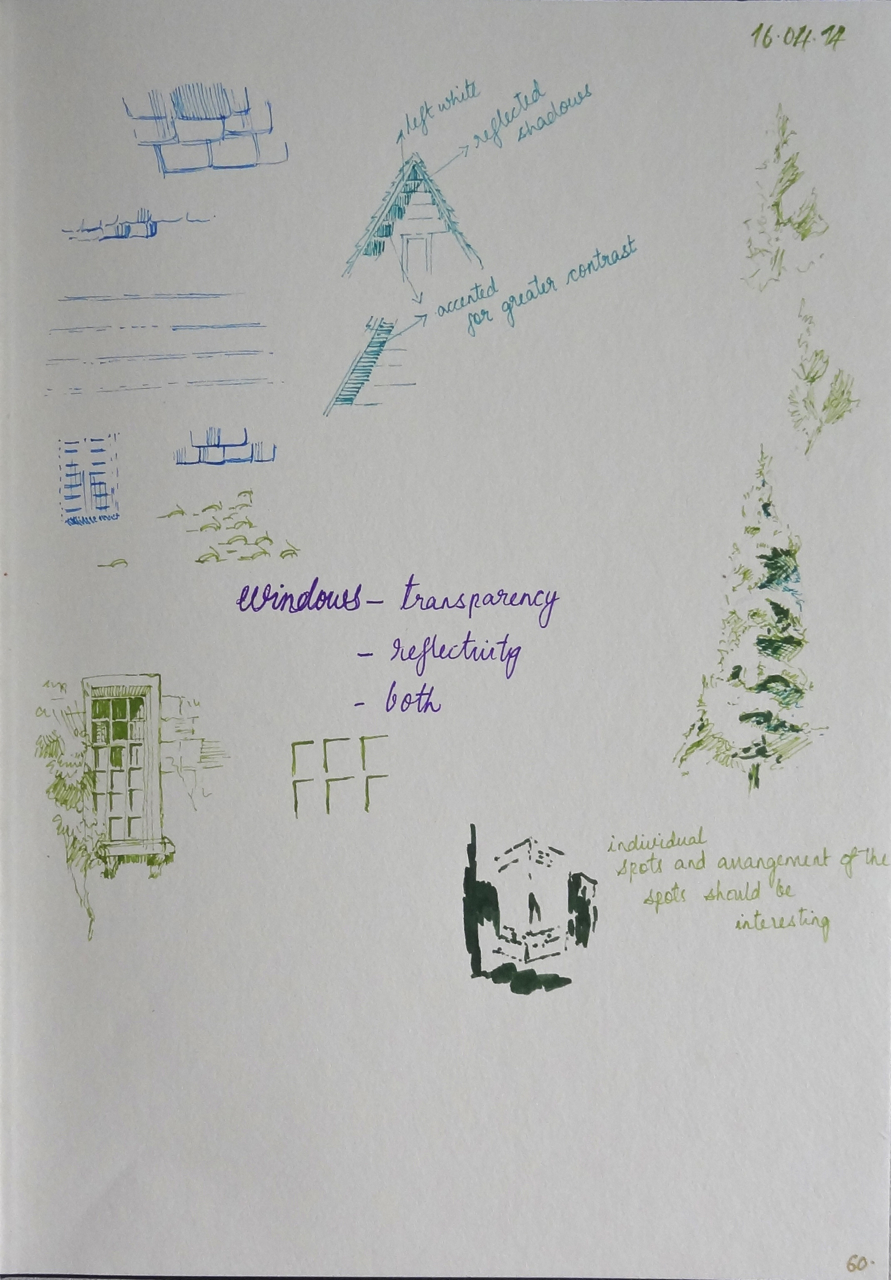 16.04.14
left white
reflected
shadows
accented
for greater contrast
Windows – transparency
– reflectivity
– both
individual
spots and arrangement of the
spots should be
interesting
60.